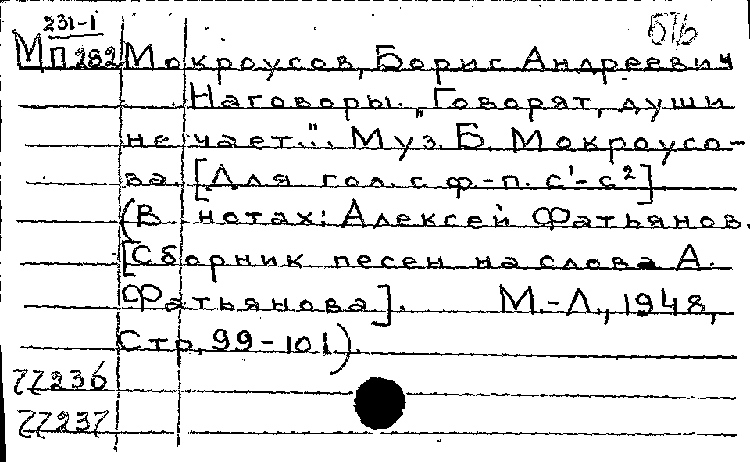 231-1
МП282 Мокроусов, Борис Андреевич
Наговоры. „Говорят, души
не чает.". Муз. Б. Мокроусо-
ва. [Для гол. с ф-п. c¹-c²].
(В нотах: Алексей Фатьянов.
[Сборник песен на слова А.
Фатьянова]. М.-Л., 1948,
Стр. 99-101).
77236
77237